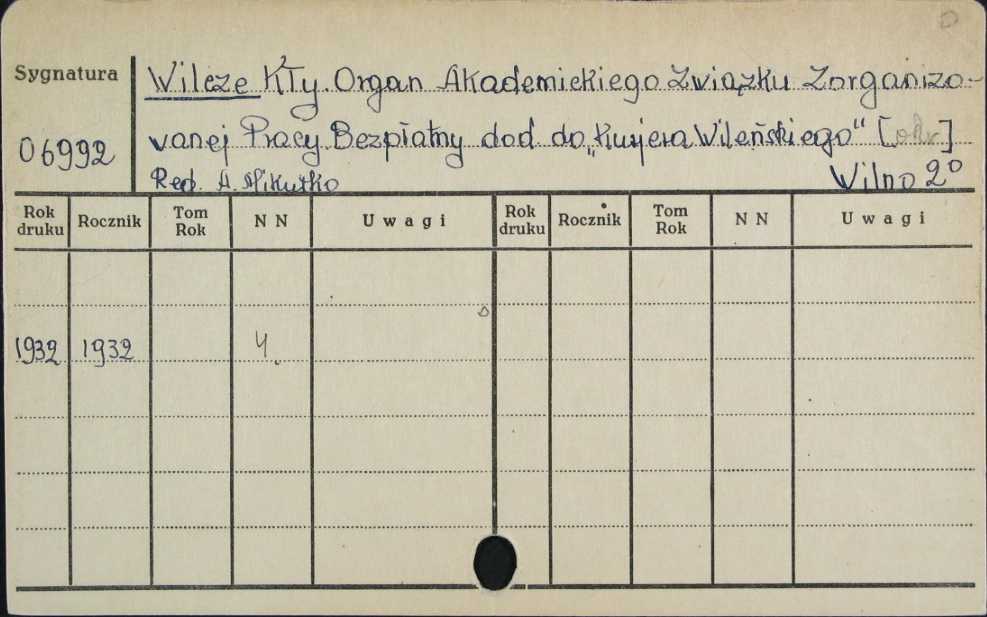 Sygnatura
06992
Wilcze Kły. Organ Akademickiego Związku Zorganizo-
wanej Pracy. Bezpłatny dod. do „Kurjera Wileńskiego" [odr]
Red. A. Mikułko Wilno 2°
Rok druku Rocznik Tom Rok N N Uwagi Rok druku Rocznik Tom Rok N N Uwagi
1932 1932 4.